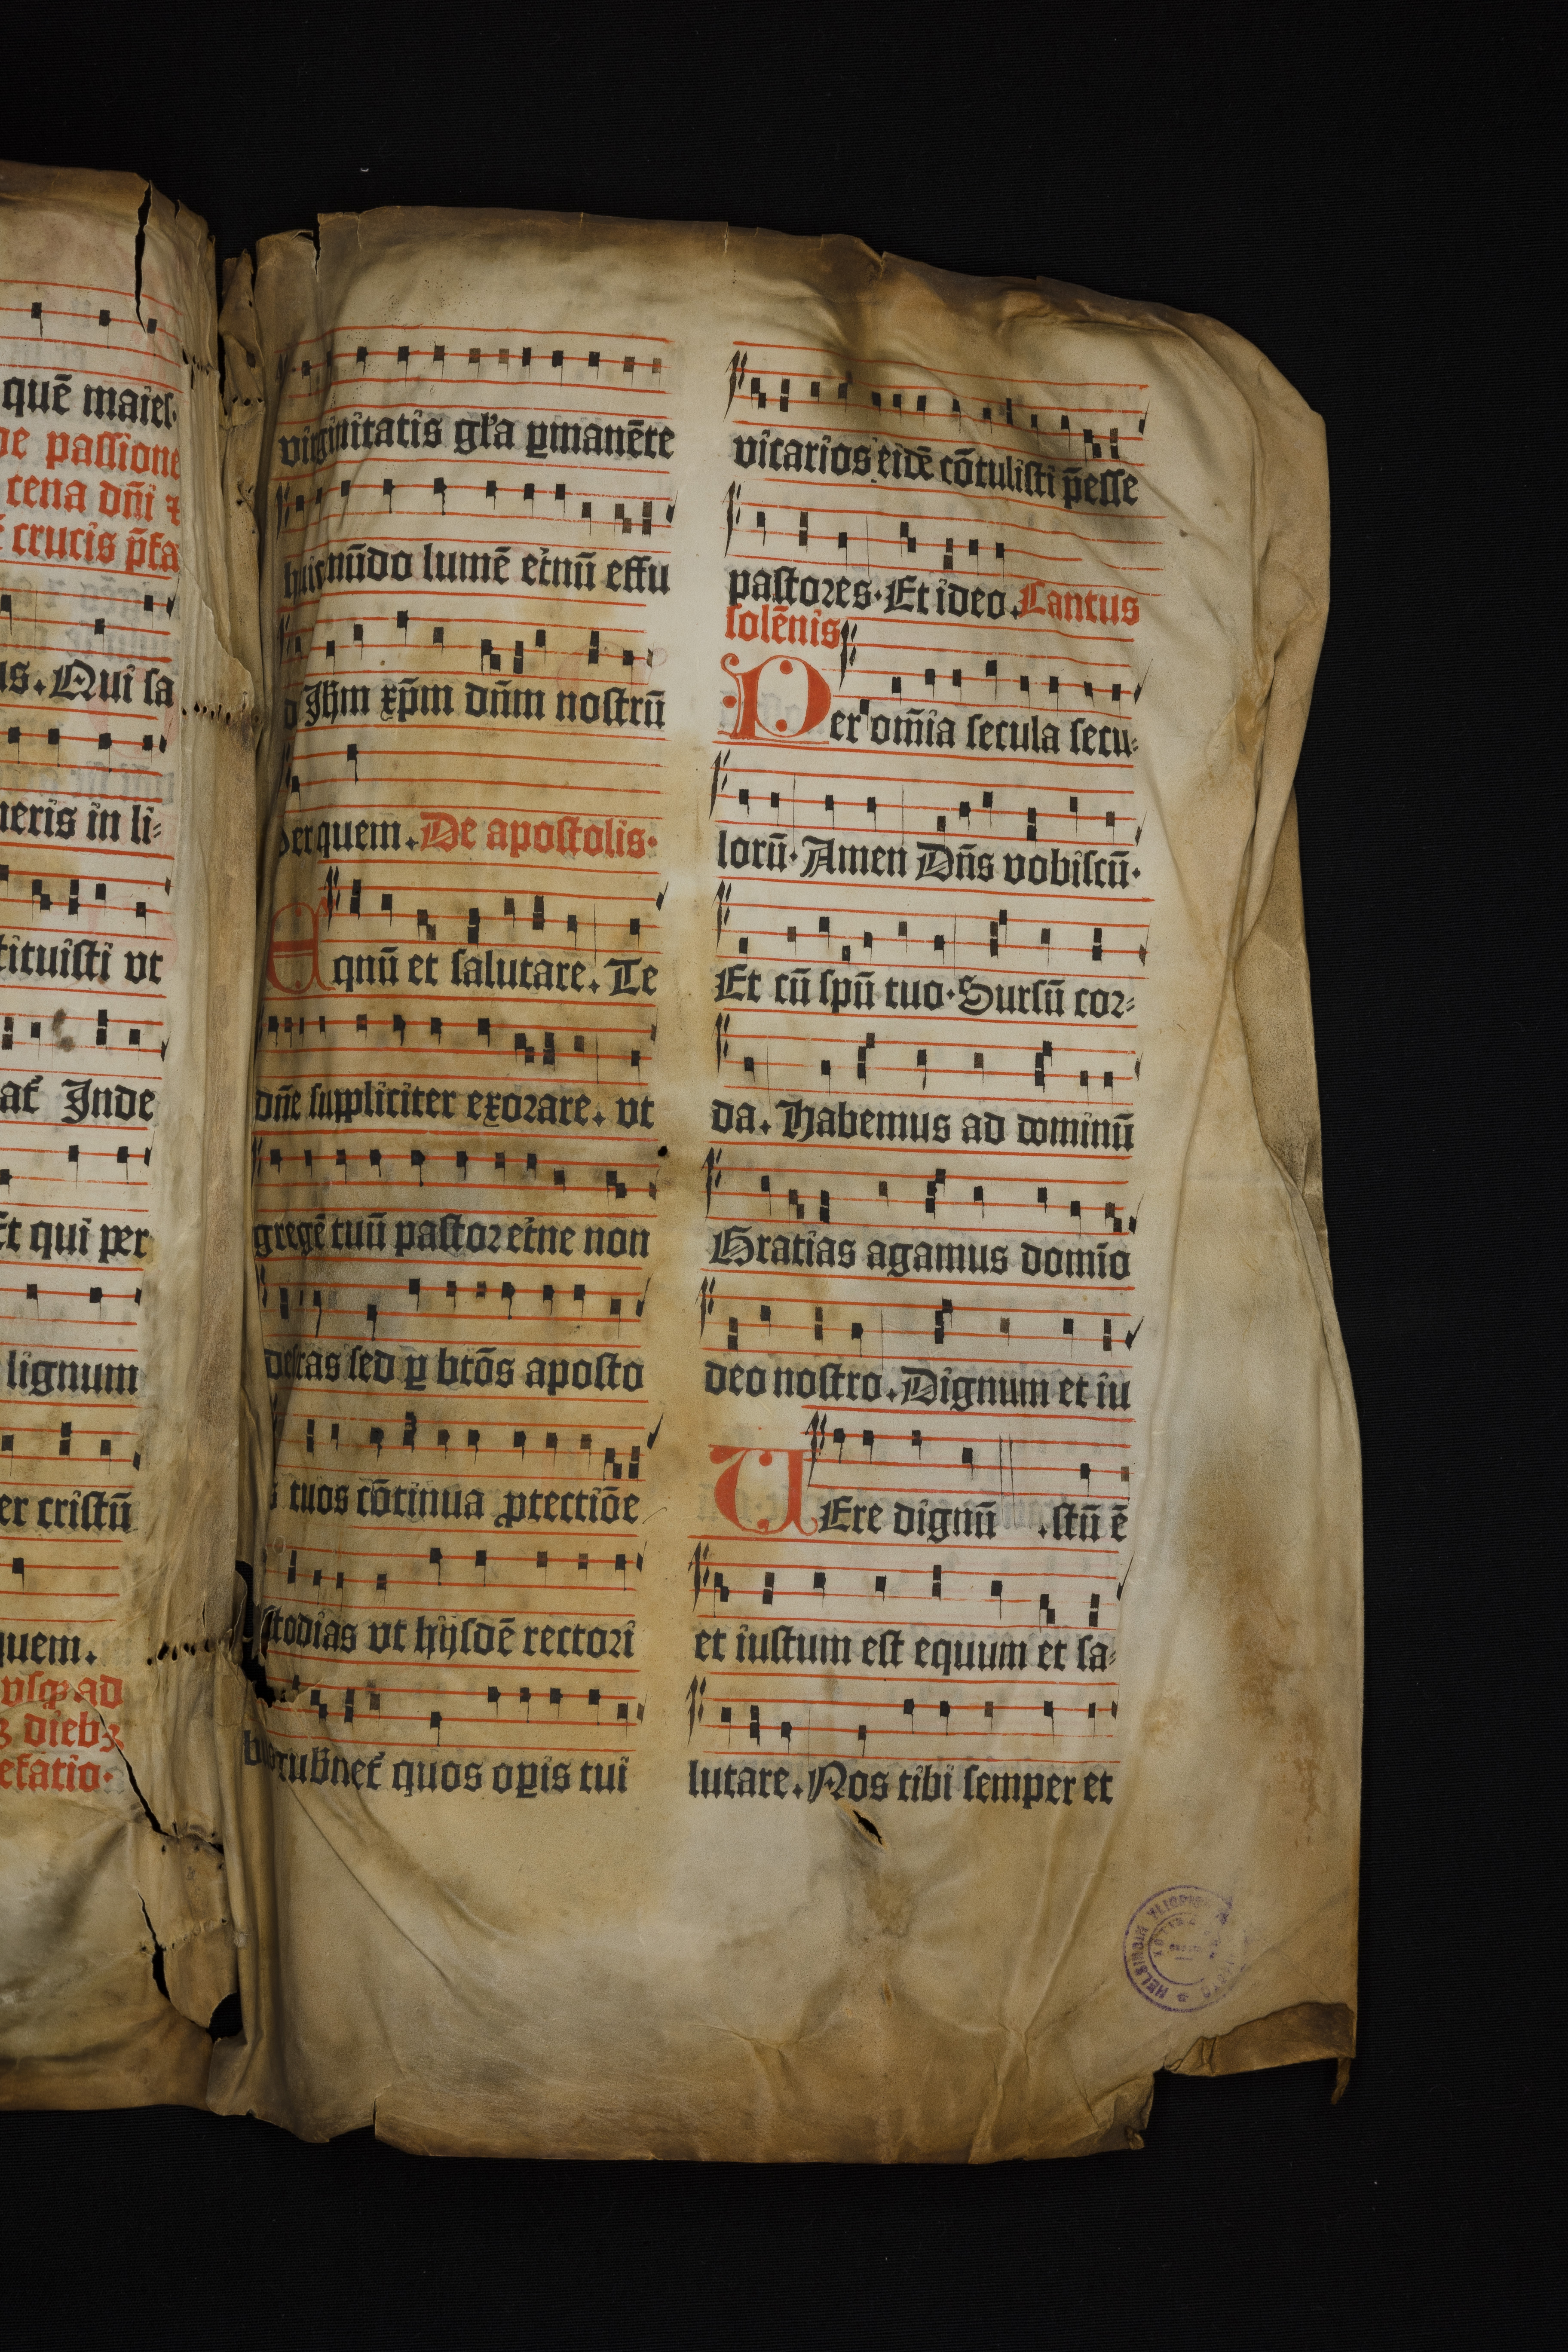 quē maies
de passione
cena dn̄i ⁊
crucis p̄fa
us. Qui sa
neris in li⸗
tituisti vt
at᷑ Inde
Et qui per
lignum
er cristū
quem.
vsq̨ ad
dieb⁊
efatio·
virginitatis gr̄a ꝑmanēte
huic mūdo lumē et̓nū effu
Ihm xp̄m dn̄m nostrū
Per quem. De apostolis·
Eqnū et salutare. Te
dn̄e suppliciter exorare. vt
gregē tuū pastor et̓ne non
deseras sed ꝑ btōs aposto
s tuos cōtinua ꝓtectiōe
stodias vt hijsdē rectori
bus gubnet᷑ quos oꝑis tui
vicarios eidē cōtulisti p̄esse
pastores. Et ideo. Cantus
solēnis
Per om̄ia secula secu⸗
lorū. Amen Dn̄s vobiscū.
Et cū spū tuo. Sursū cor⸗
da. Habemus ad dominū
Gratias agamus domīo
deo nostro. Dignum et iu
UEre dignū .stū ē
et iustum est equum et sa⸗
lutare. Nos tibi semper et